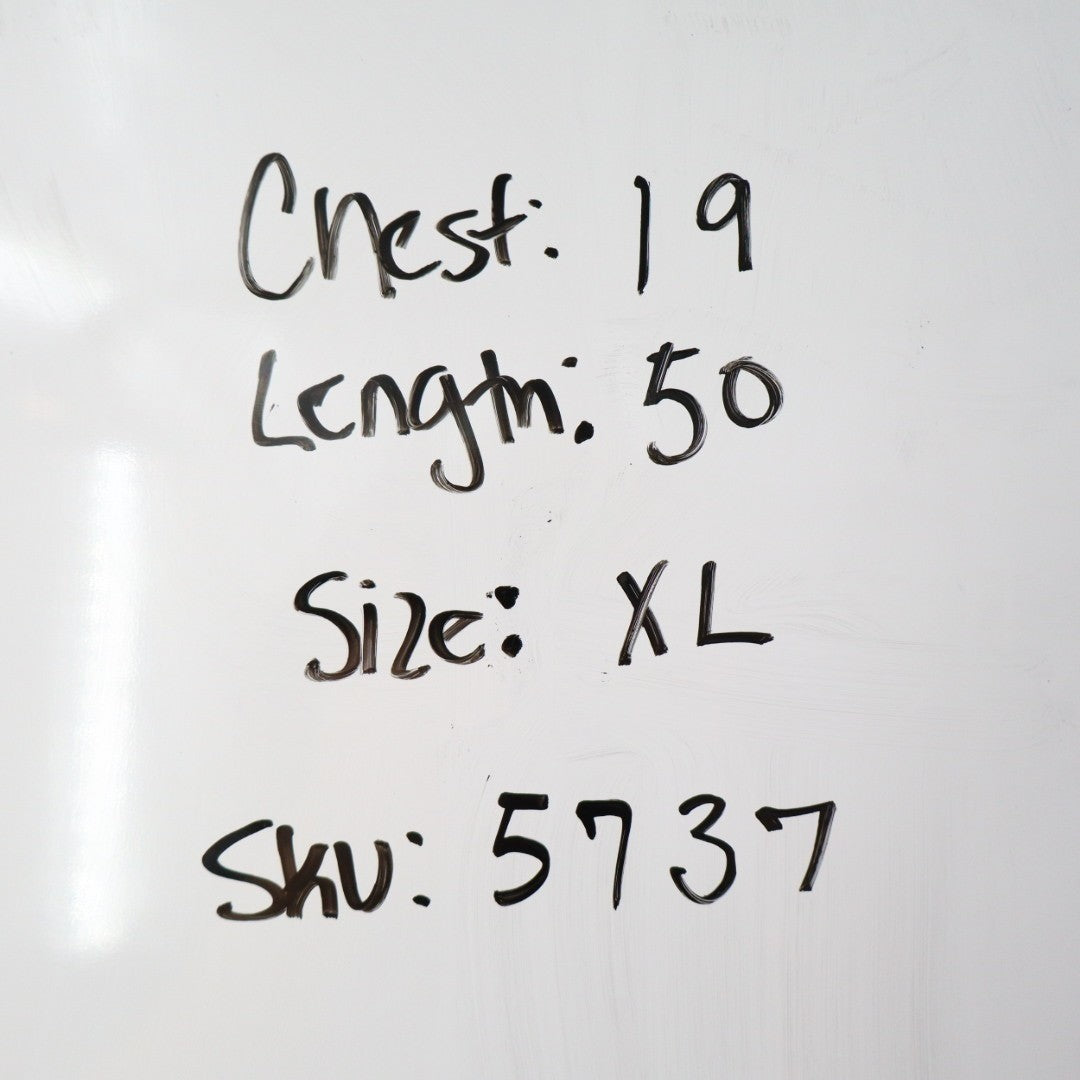 Chest: 19
Length: 50
Size: XL
Sku: 5737